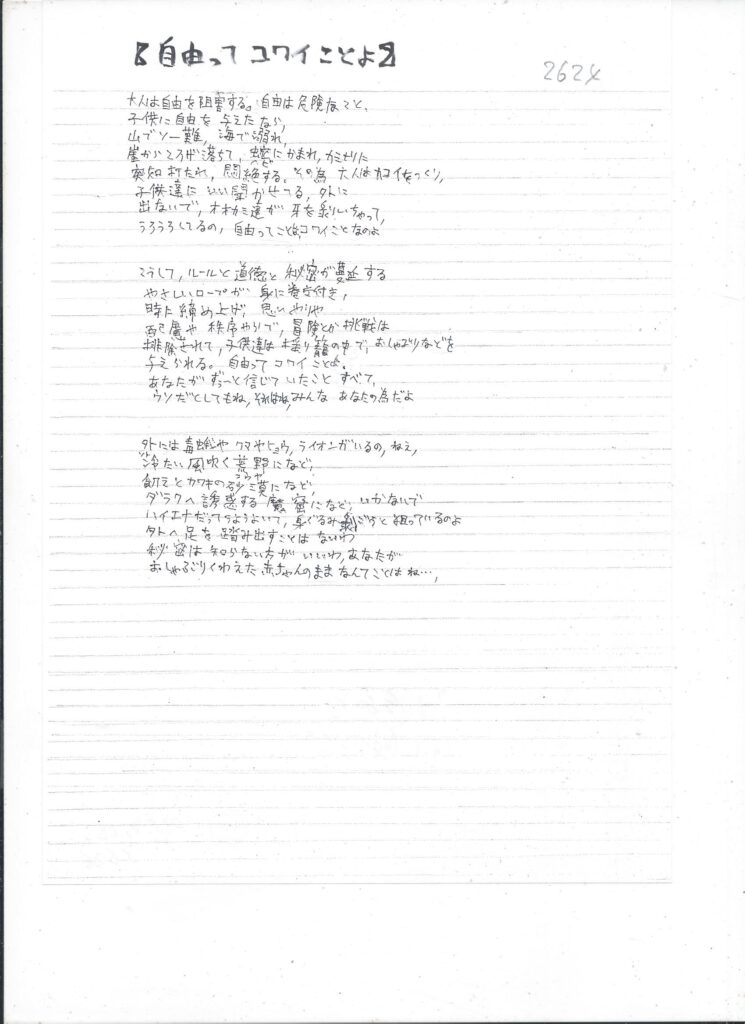 【自由って コワイことよ】
2624
大人は自由を阻害する。自由は危険なこと、
子供に自由を 与えたなら、
山でソー難、海で溺れ、
崖からころげ落ちて、にかまれ、カミナリに
突如打たれ、悶絶する。その為 大人はカコイをつくり、
子供達に いい聞かせてる、外に
出ないで、オオカミ達が 牙を剥いちゃって、
うろうろしてるの、自由ってことは、コワイことなのよ
こうして、ルールと道徳と秘密が蔓延する
やさしいロープが 身に巻き付き、
時に締め上げ、思いやりや
配慮や 秩序やらで、冒険とか挑戦は
排除されて、子供達は揺り籠の中で、おしゃぶりなどを
与えられる。自由って コワイことよ。
あなたが ずーっと信じて いたこと すべて、
ウソだとしてもね、それはね、みんな あなたの為だよ
外には毒蛇や クマやヒョウ、ライオンがいるの、ねえ、
冷たい風吹く荒野になど、
飢えとカワキの砂漠になど、
ダラクへ誘惑する魔密になど、いかないで
ハイエナだってうようよいて、身ぐるみ剥ごうと狙っているのよ
外へ足を踏み出すことは ないわ
秘密は知らない方が いいわ、あなたが
おしゃぶりくわえた赤ちゃんのまま なんてことはね…、